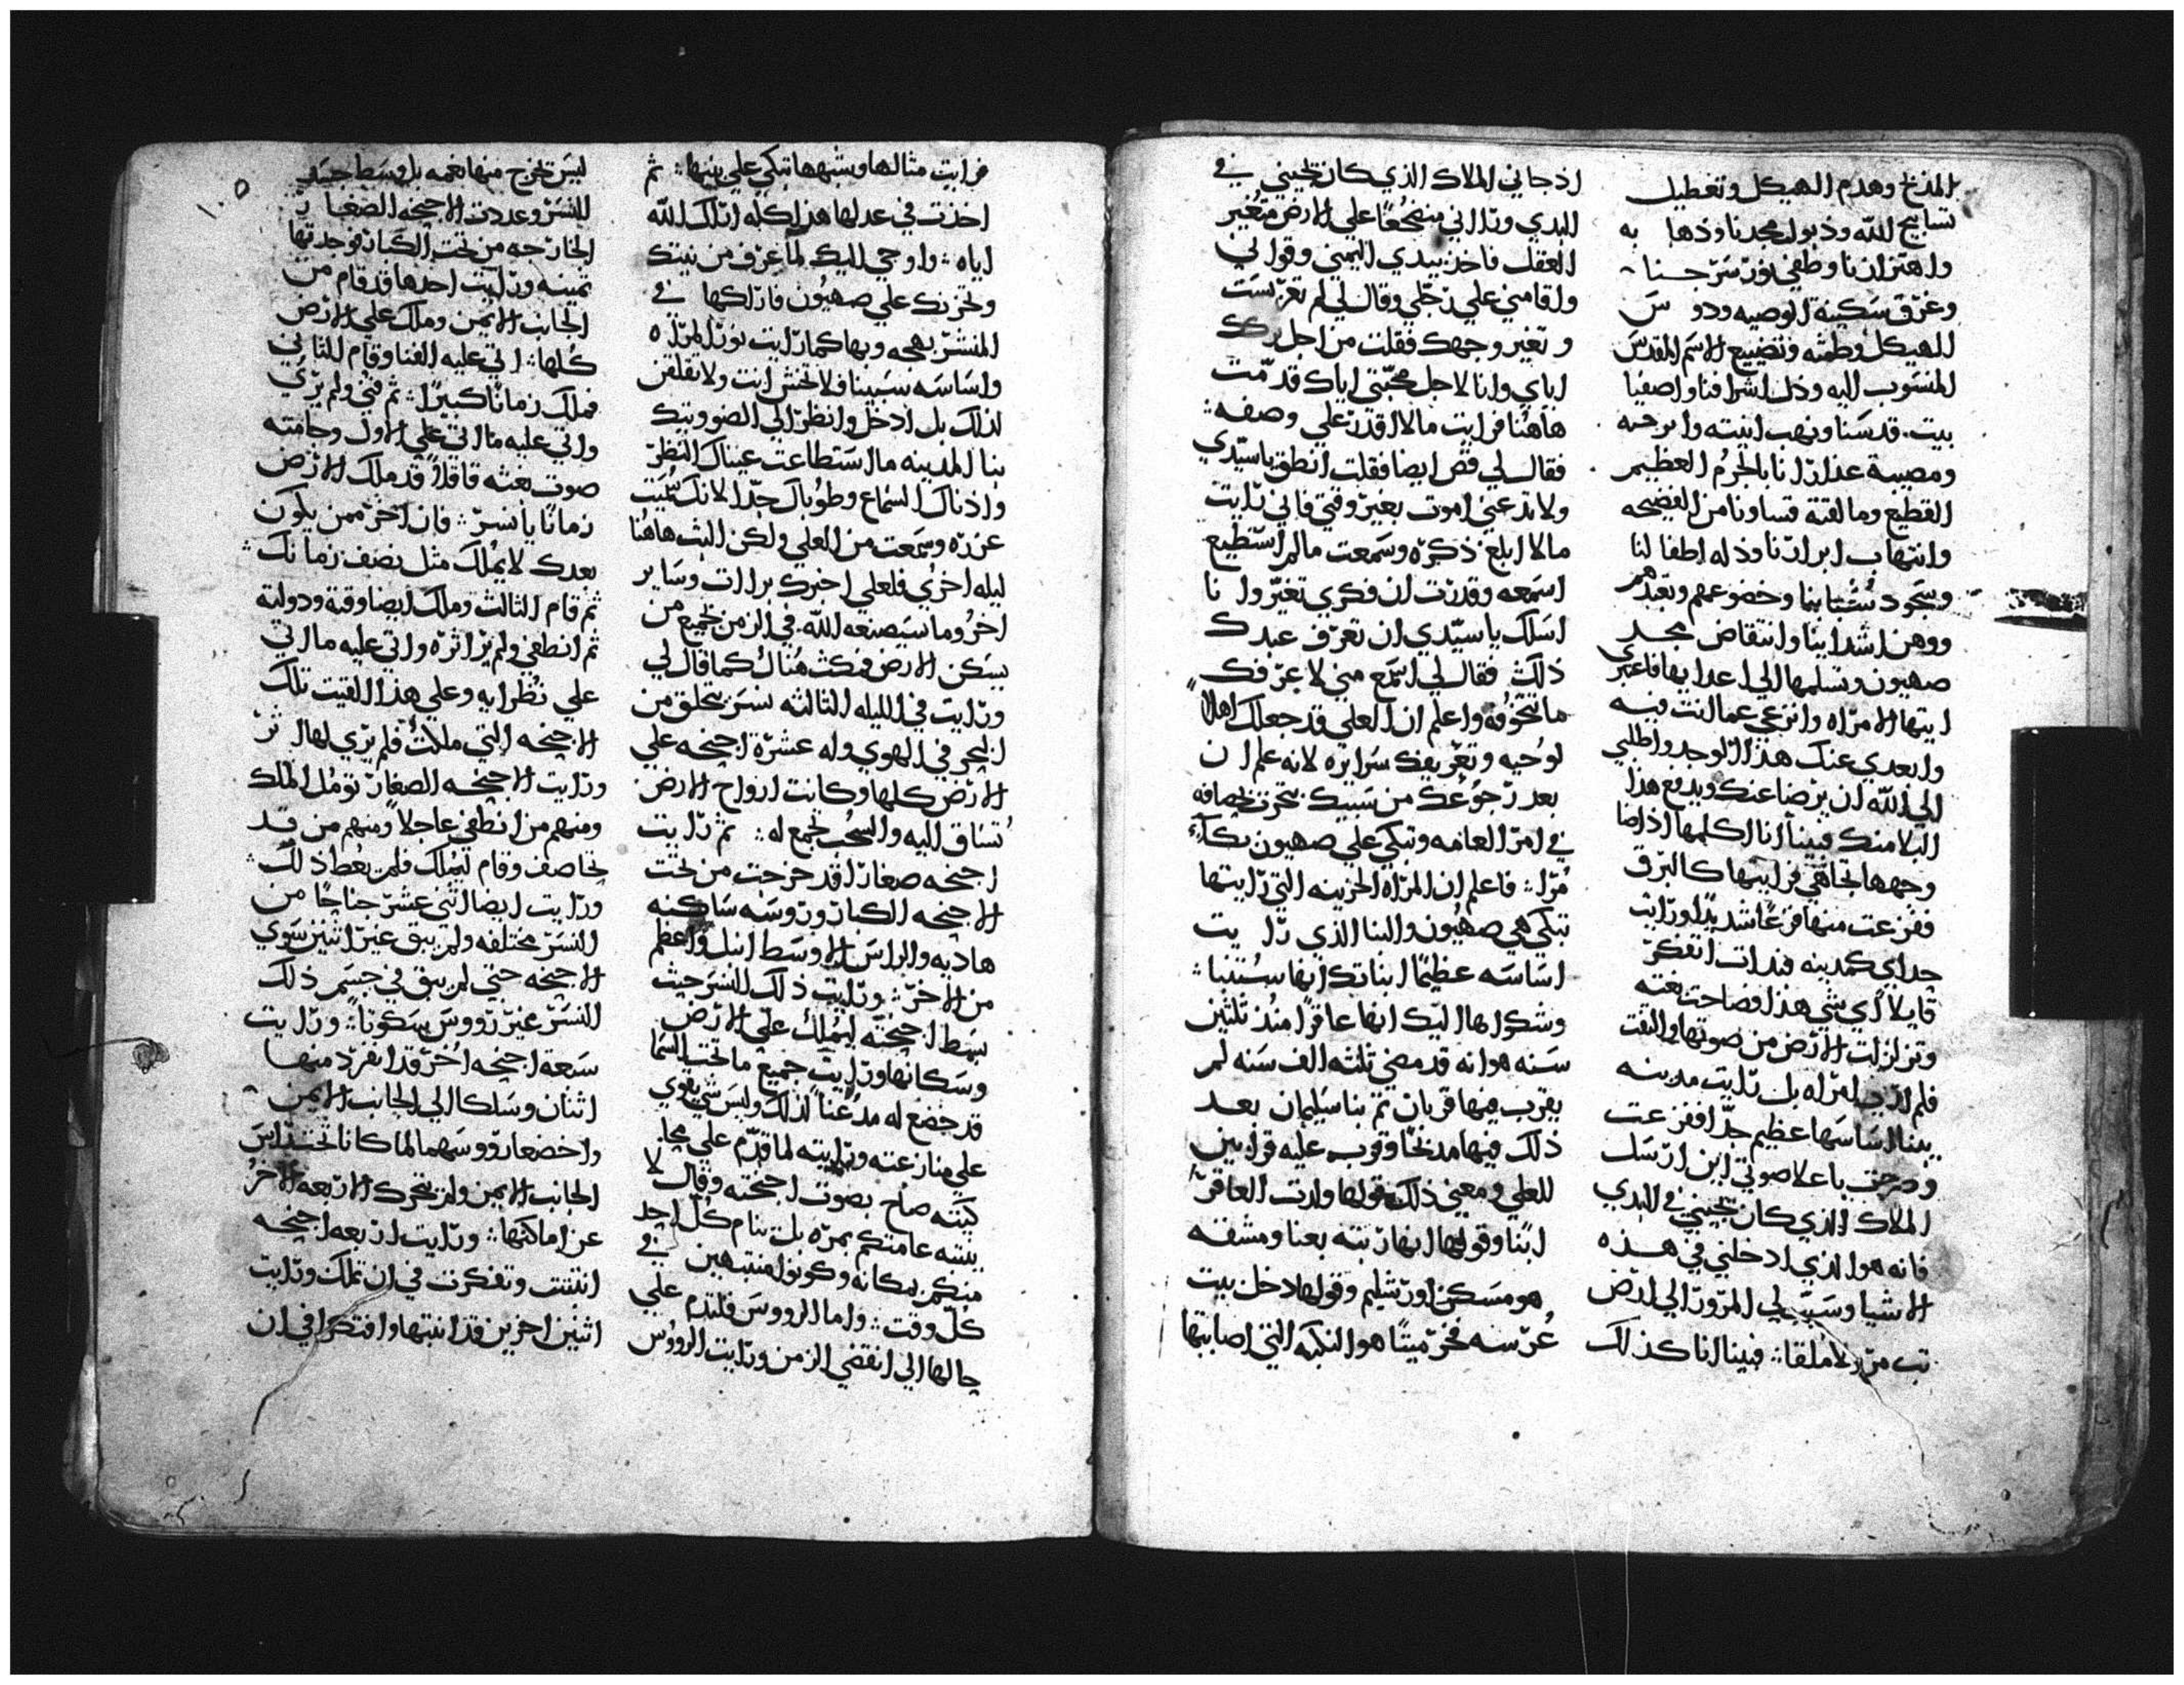 المذبح وهدم الهيكل وتعطيل
تسابيح الله وذبول مجدنا وذهاب به
واهتزازنا وطفي نور سرجنا
وغرق سكينة الوصيه ودوس
الهيكل وطمثه وتضييع الاسم المقدس
المنسوب اليه وذل اشرافنا واصفيا
بيت قدسنا ونهب ابنيته وابرجته
ومصيبة عذارانا بالجرم العظيم
الفظيع وما لقته نساونا من الفضيحه
وانتهاب ابرارنا وذله اطفالنا
وسجود شبابنا وخضوعهم وتعبدهم
ووهن اشداينا وانتقاض مجد
صهيون وتسلمها الي اعدايها فاعبري
ايتها الامراه وانزعي عما انت فيه
وابعدي عنك هذا التوجد واطلبي
الي الله ان يرضا عنك ويدفع هذا
البلا منك فبينا انا اكلمها اذ اضا
وجهها تجاهي فرايتها كالبرق
ففزعت منها فزعا شديدا ورايت
جداي كمدينه فبدات اتفكر
قايلا اي شي هذا فصاحت بغته
وتزلزلت الارض من صوتها والتفت
فلم اري المراه بل رايت مدينه
بينا اساسها عظيم جدا ففزعت
وصرخت باعلا صوتي اين ارسل
الملاك الذي كان يجيني في البدي
فانه هو الذي ادخلني في هذه
الاشيا وسبب لي المرور الي ارض
ملقا فبينا انا كذلك
اذ جاني الملاك الذي كان يجيني في
البدي وراني منضجعا علي الارض متغير
العقل فاخذ بيدي اليمني وقواني
واقامني علي رجلي وقال لي لم تعربست
وتغير وجهك فقلت من اجل تركك
اياي وانا لاجل محبتي اياك قدمت
هاهنا فرايت ما لا اقدر علي وصفه
فقال لي قص ايضا فقلت انطق يا سيدي
ولا تدعني اموت بغير وقتي فاني رايت
ما لا ابلغ ذكره وسمعت ما لم استطيع
اسمعه وقدرت ان فكري تغير وانا
اسلك يا سيدي ان تعرف عبدك
ذلك فقال لي استمع مني لاعرفك
ما تتخوفه واعلم ان العلي قد جعلك اهلا
لوحيه وتعريفك سرايره لانه علم ان
بعد رجوعك من سبيك تحزن بحصافه
في امر العامه وتبكي علي صهيون بكاء
مرا فاعلم ان المراه الحزينه التي رايتها
تبكي هي صهيون والبنا الذي رايت
اساسه عظيما انباتك انها ستبنا
وشكواها اليك انها عاقرا منذ ثلثين
سنه هو انه قد مضي ثلثه الف سنه لم
يقرب فيها قربان ثم بنا سليمان بعد
ذلك فيها مدبحا وقرب عليه قرابين
للعلي ومعني ذلك قولها ولدت العاقر
ابنا وقولها انها ربته بعنا ومشقه
هو مسكن اورشليم وقولها دخل بيت
عرسه فخر ميتا هو النكبه التي اصابتها
فرايت مثالها وشبهها تبكي علي بنيها ثم
اخذت في عدلها هذا كله اتلك الله
اياه واوحي اليك لما عرف من نيتك
وتحزنك علي صهيون فاراكها في
المنتشر بهجه وبها كما رايت نور المراه
واساسه سيبنا فلا تخش انت ولا تقلقن
لذلك بل ادخل وانظر الي الضو وبتك
بنا المدينه ما استطاعت عيناك النظر
واذناك السماع وطوباك جدا لانك
عزره وسمعت من العلي ولكن البث هاهنا
ليله اخري فلعلي اخبرك برا ات وساير
اخر وما سيصنعه الله في الزمن بجميع من
يسكن الارض فمكثت هناك كما قال لي
ورايت في الليله الثالثه نسر يتحلق من
البحر في الهوي وله عشرة اجنحه علي
الارض كلها وكانت ارواح الارض
تساق اليه والسحب تجمع له ثم رايت
اجنحه صغارا قد خرجت من تحت
الاجنحه الكبار وروسه ساكنه
هاديه والراس الاوسط انبل واعظم
من الاخر ورايت ذلك النسر حيث
بسط اجنحته ليملك علي الارض
وسكانها ورايت جميع ما تحت السما
قد خضع له مدعنا لذلك وليس شي يقوي
علي منازعته ورايته لما قدم علي مجا
كبته صاح بصوت اجنحته وقال لا
بيته عامتكم بمره بل ينام كل احد
منكم بمكانه وكونوا منتبهين في
كل وقت واما الرووس فلتدم علي
حالها الي انقضي الزمن ورايت الرووس
ليس تخرج منها نغمه بل وسط جسد
النسر وعددت الاجنحه الصغار
الخارجه من تحت الكبار فوجدتها
ثمنيه ورايت احدها قد قام من
الجانب الايمن وملك علي الارض
كلها اتي عليه الفنا وقام الثاني
فملك زمانا كبيرا ثم فني ولم يري
واتي عليه ما اتي علي الاول وجاته
صوت بغته قاقلا قد ملك الارض
زمانا يا نسر فان اخر ممن يكون
بعدك لا يملك مثل نصف زمانك
ثم قام الثالث وملك ايضا وقته ودولته
ثم انطفي ولم ير اثره واتي عليه ما اتي
علي نظرايه وعلي هذا القيت تلك
الاجنحه التي ملكت فلم يري لها اثر
ورايت الاجنحه الصغار تومل الملك
ومنهم من انطفي عاجلا ومنهم من قد
تحاصف وقام ليملك فلم يعط ذلك
ورايت ايضا اثني عشر جناحا من
النسر مختلفه ولم يبق غير اثنين سوي
الاجنحه حتي لم يبق في جسم ذلك
النسر غير رووس سكوتا ورايت
سبعة اجنحه اخر قد انفرد منها
اثنان وسلكا الي الجانب الايمن
واخضعا رووسهما لما كانا تحت راس
الجانب الايمن ولم يتحرك الاربعه الاخر
عن اماكنها ورايت اربعه اجنحه
انتبت وتفكرت في ان تملك ورايت
اثنين اخرين قد انتبها وافتكرا في ان
١٠٥